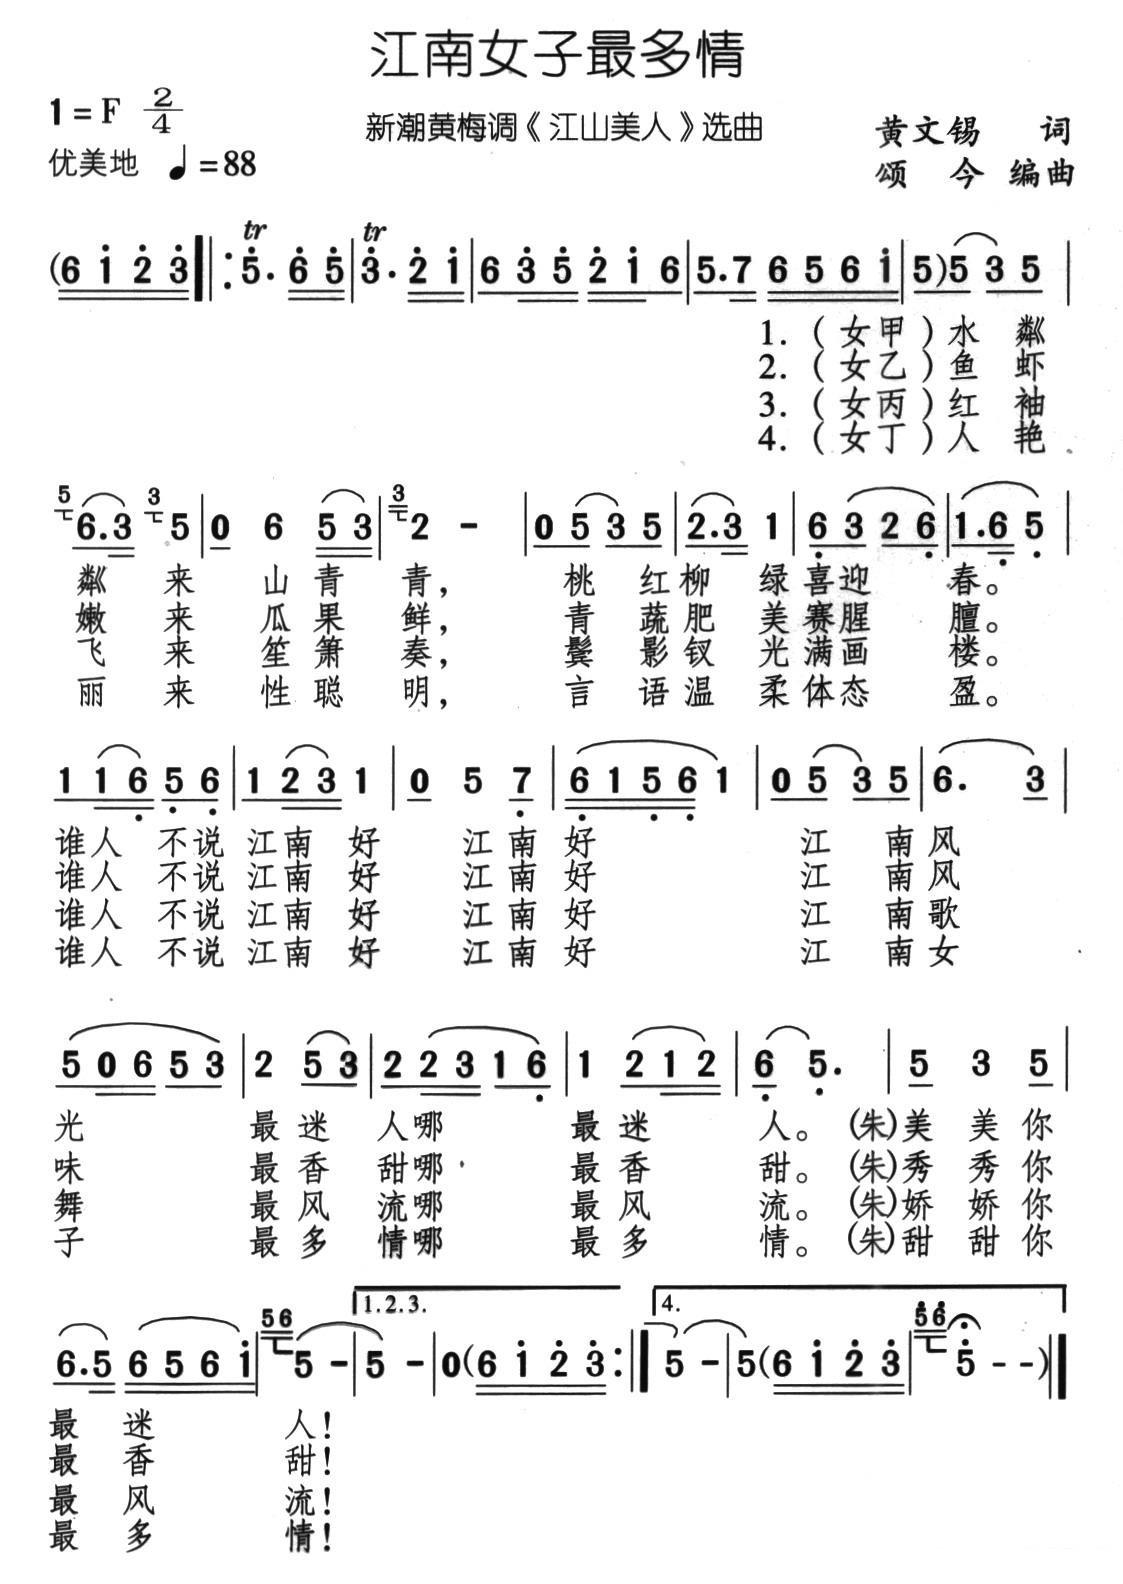 江南女子最多情
1=F 2/4
新潮黄梅调《江山美人》选曲
黄文锡 词
优美地 ♩=88
颂今 编曲
tr tr
(6 1 2 3 5. 6 5 3. 2 1 6 3 5 2 1 6 5.7 6 5 6 1 5)5 3 5
1.(女甲)水粼
2.(女乙)鱼虾
3.(女丙)红袖
4.(女丁)人艳
5 6.3 3 5 0 6 5 3 3 2 - 0 5 3 5 2.3 1 6 3 2 6 1.6 5
粼来山青青,桃红柳绿喜迎春。
嫩来瓜果鲜,青蔬肥美赛腥膻。
飞来笙箫奏,鬓影钗光满画楼。
丽来性聪明,言语温柔体态盈。
1 1 6 5 6 1 2 3 1 0 5 7 6 1 5 6 1 0 5 3 5 6. 3
谁人不说江南好江南好江南风
谁人不说江南好江南好江南风
谁人不说江南好江南好江南歌
谁人不说江南好江南好江南女
5 0 6 5 3 2 5 3 2 2 3 1 6 1 2 1 2 6 5. 5 3 5
光最迷人哪最迷人。(朱)美美你
味最香甜哪最香甜。(朱)秀秀你
舞最风流哪最风流。(朱)娇娇你
子最多情哪最多情。(朱)甜甜你
1.2.3. 4.
6.5 6 5 6 1 56 5 - 5 - 0(6 1 2 3 5 - 5(6 1 2 3 56 5 - -)
最迷人!
最香甜!
最风流!
最多情!